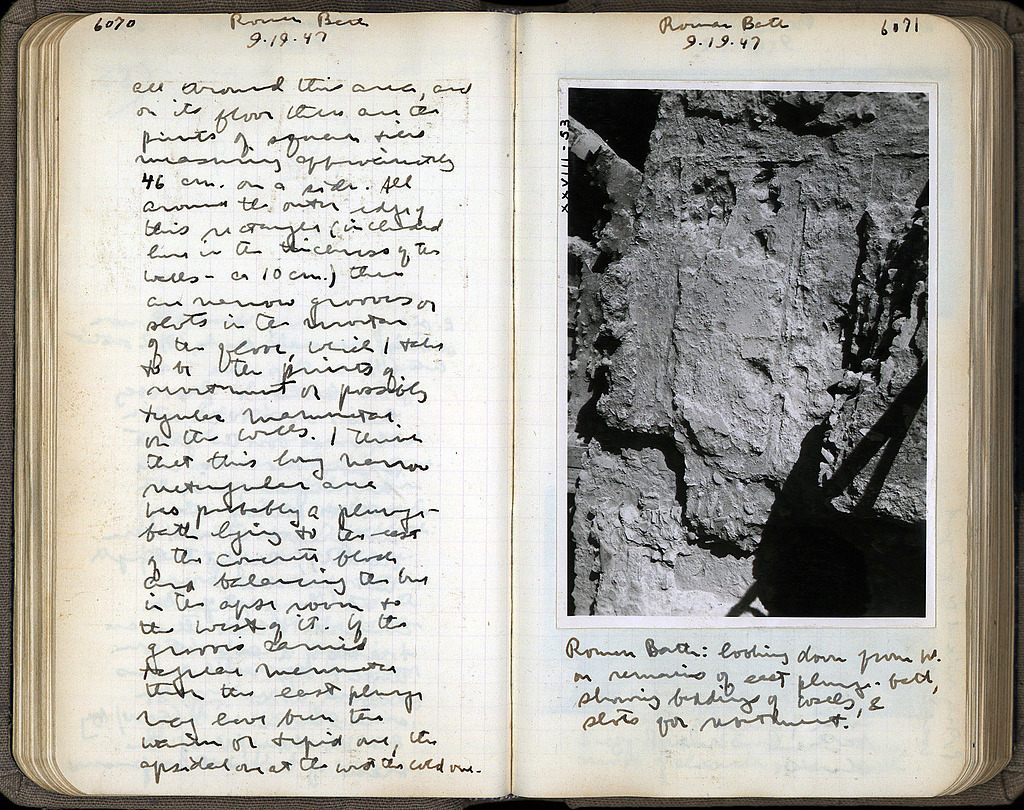 6070
Roman Bath
9.19.47
all around this area, and
on its floor there are the
prints of square tiles
measuring approximately
46 cm. on a side. All
around the outer edge of
this rectangle (included
here in the thickness of the
walls - ca 10 cm.) there
are narrow grooves or
slots in the mortar
of the floor, which I take
to be the prints of
revetment or possibly
tegulae mammatae
on the walls. I think
that this long narrow
rectangular area
was probably a plunge-
bath lying to the east
of the concrete block
and balancing the one
in the apse room to
the west of it. If the
grooves carried
tegulae mammatae
then the east plunge
may have been the
warm or tepid one, the
apsidal one at the west the cold one.
Roman Bath
9.19.47
6071
XXVIII-53
Roman Bath: looking down from W.
on remains of east plunge-bath,
showing bedding of walls, &
slots for revetment.